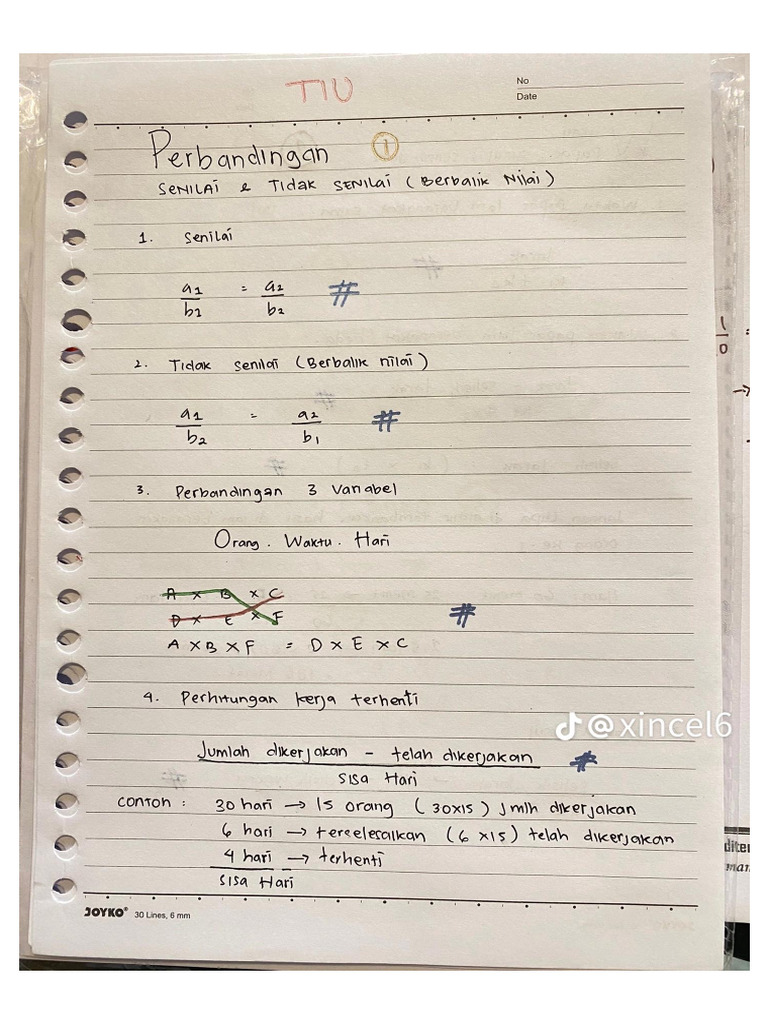 TIU
No
Date
Perbandingan 1
SENILAI & TIDAK SENILAI (Berbalik Nilai)
1. Senilai
a1 = a2 #
b1 b2
2. Tidak senilai (Berbalik nilai)
a1 = a2 #
b2 b1
3. Perbandingan 3 Variabel
Orang . Waktu . Hari
A x B x C
D x E x F #
A x B x F = D x E x C
4. Perhitungan kerja terhenti
Jumlah dikerjakan - telah dikerjakan #
Sisa Hari
CONTOH : 30 hari → 15 orang (30x15) jmlh dikerjakan
6 hari → terselesaikan (6 x15) telah dikerjakan
4 hari → terhenti
Sisa Hari
JOYKO® 30 Lines, 6 mm
@xincel6
1
0